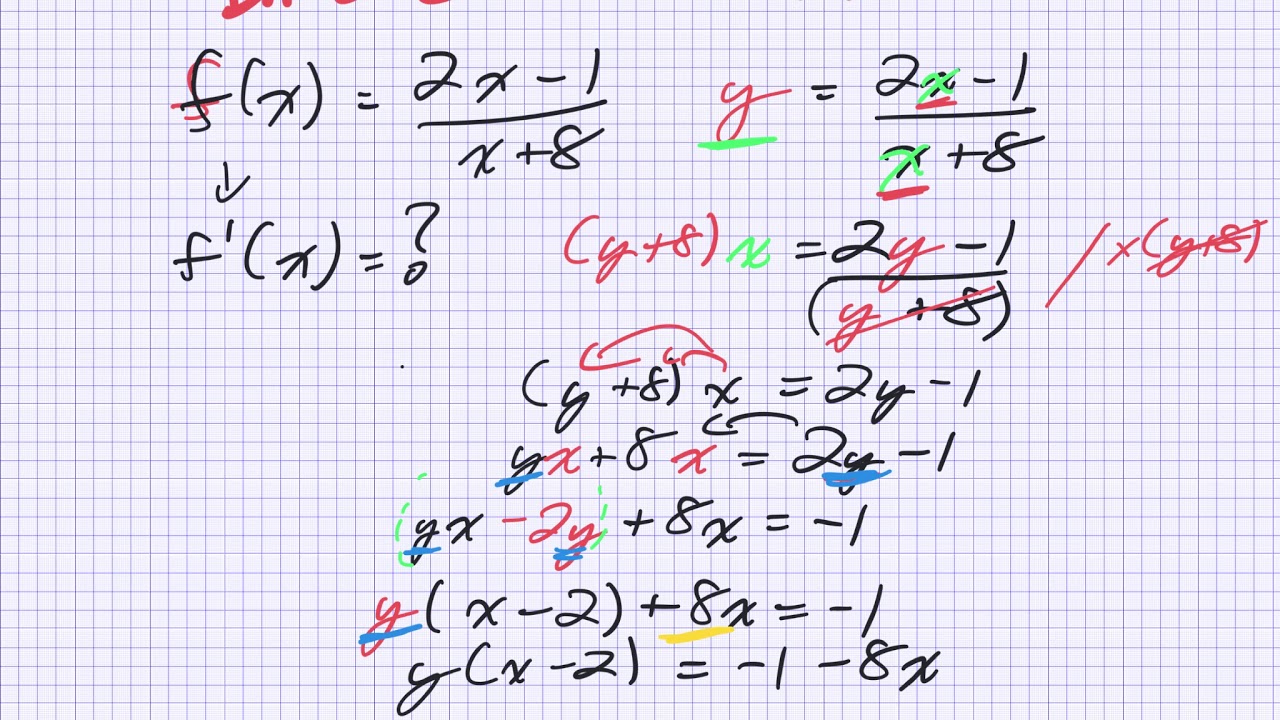 f(x) = (2x-1)/(x+8)    y = (2x-1)/(x+8)
↓
f'(x) = ?    (y+8)x = (2y-1)/(y+8)  / ×(y+8)
(y+8)x = 2y-1
yx+8x = 2y-1
yx-2y+8x = -1
y(x-2)+8x = -1
y(x-2) = -1-8x